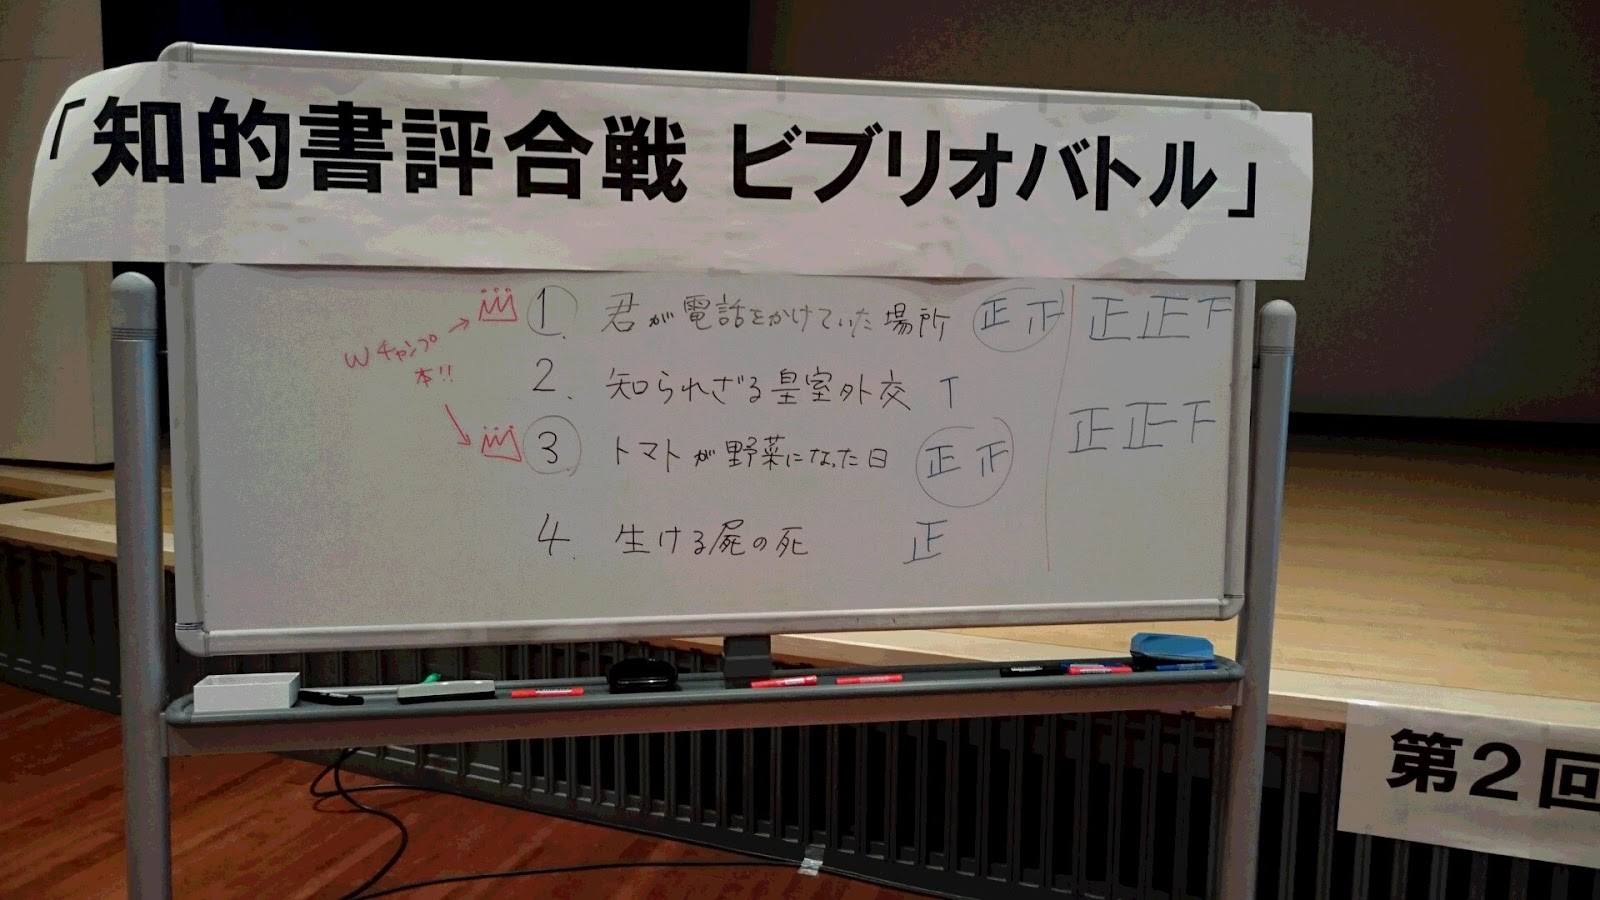 「知的書評合戦 ビブリオバトル」
1. 君が電話をかけていた場所 正 正 正正下
Wチャンプ
本!!
2. 知られざる皇室外交 T
3 トマトが野菜になった日 正 正 正正下
4. 生ける屍の死 正
第2回